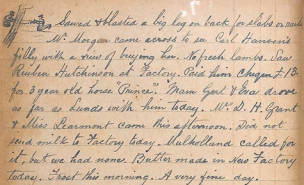 Sawed & blasted a big log on back for slabs or rails
Mr. Morgan came across to see Carl Hansen's
filly with a view of buying her. No fresh lambs. Saw
Reuben Hutchinson at Factory. Paid him Cheque £13.
for 3 year old horse "Prince". Mam Gert & Eva drove
as far as Lunds with him today. Mr. D. H. Grant
& Miss Learmont came this afternoon. Did not
send milk to Factory today. Mulholland called for
it, but we had none. Butter made in New Factory
today. Frost this morning. A very fine day.